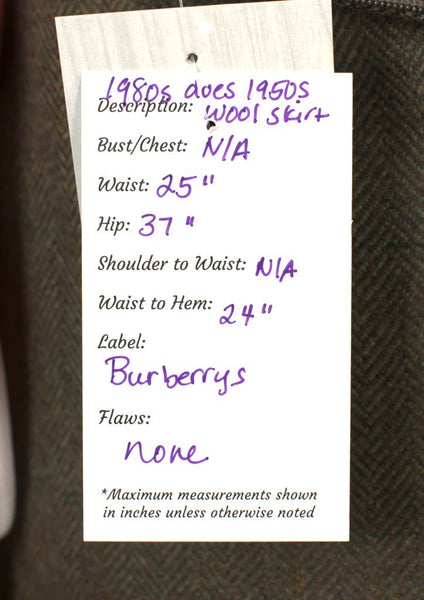 1980s does 1950s
Description: wool skirt
Bust/Chest: N/A
Waist: 25"
Hip: 37"
Shoulder to Waist: N/A
Waist to Hem: 24"
Label:
Burberrys
Flaws:
none
*Maximum measurements shown
in inches unless otherwise noted